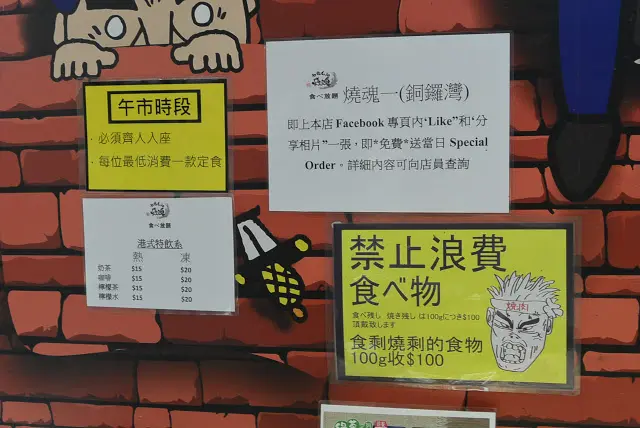 午市時段
· 必須齊人入座
· 每位最低消費一款定食
食べ放題 燒魂一(銅鑼灣)
即上本店 Facebook 專頁內‘Like”和‘分
享相片”一張，即*免費*送當日 Special
Order。詳細內容可向店員查詢
食べ放題
港式特飲系
熱 凍
奶茶 $15 $20
咖啡 $15 $20
檸檬茶 $15 $20
檸檬水 $15 $20
禁止浪費
食べ物
食べ残し 焼き残し は100gにつき$100
頂戴致します
食剩燒剩的食物
100g收$100
焼肉